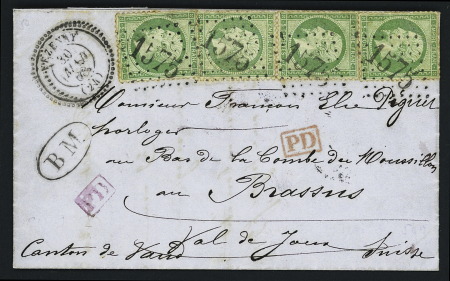 1575 1575 1575 1575
30
(38)
Monsieur François Elie Piguet
horloger
B M
au Bas de la Combe du Moussillon
PD
au Brassus
PD
Val de Joux
Canton de Vaud Suisse